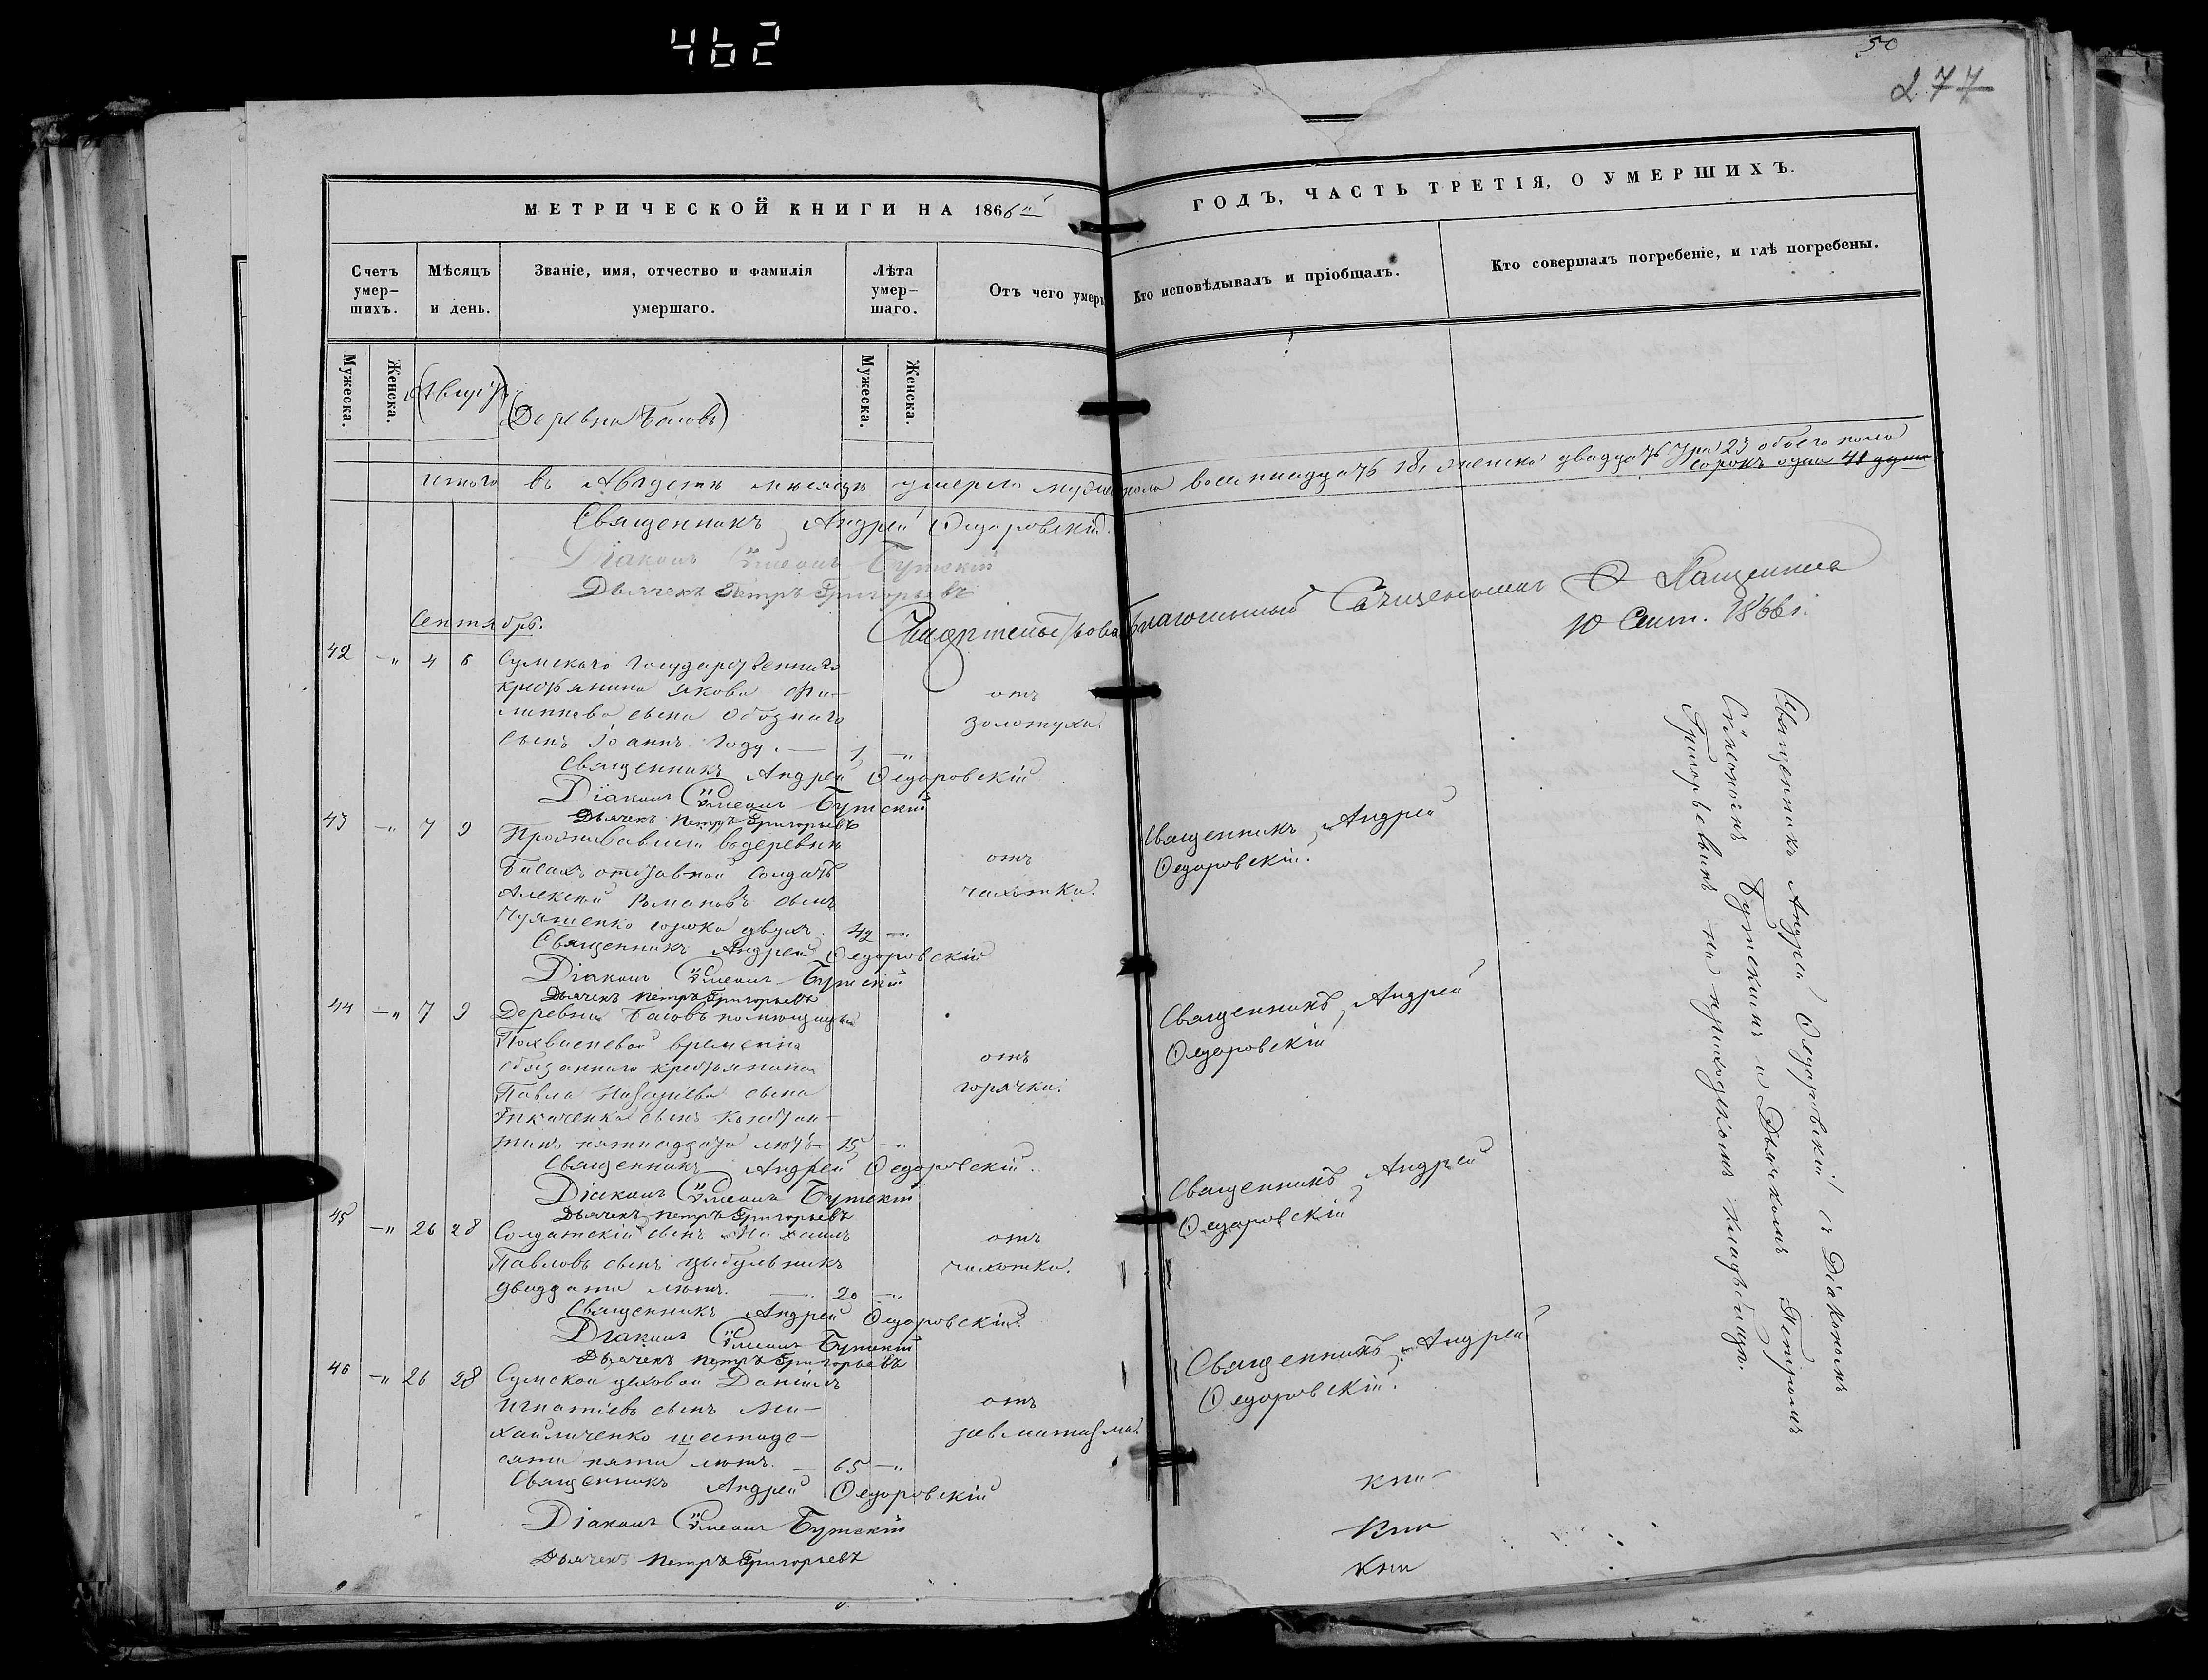 462
50
277
МЕТРИЧЕСКОЙ КНИГИ НА 1866й
ГОДЪ, ЧАСТЬ ТРЕТІЯ, О УМЕРШИХЪ.
Счетъ умер-шихъ.
Мѣсяцъ и день.
Званіе, имя, отчество и фамилія умершаго.
Лѣта умер-шаго.
Отъ чего умеръ
Кто исповѣдывалъ и пріобщалъ.
Кто совершалъ погребеніе, и гдѣ погребены.
Мужеска.
Женска.
Мужеска.
Женска.
(Августъ)
(Деревня Басовъ)
Итого въ Августѣ мѣсяцѣ умерло мужеска пола восемнадцать 18, женска двадцать три 23 обоего пола
сорокъ одна 41 душа
Священникъ Андрей Ѳедоровскій.
Діаконъ Сѵмеонъ Бутскій
Дьячекъ Петръ Григорьевъ
Свидѣтельствовалъ Благочинный Священникъ
10 Сент. 1866 г.
Сентябрь.
42 —" 4 6 Сумскаго государственнаго
крестьянина Якова Фи-
липпова сына Обознаго
сынъ Іоаннъ году. — 1 —"
отъ
золотухи.
Священникъ Андрей Ѳедоровскій
Діаконъ Сѵмеонъ Бутскій
Дьячекъ Петръ Григорьевъ
43 —" 7 9 Проживавшій въ деревнѣ
Басахъ отставной солдатъ
Алексѣй Романовъ сынъ
сорока двухъ. 42 —"
отъ
чахотки.
Священникъ Андрей
Ѳедоровскій.
Священникъ Андрей Ѳедоровскій
Діаконъ Сѵмеонъ Бутскій
Дьячекъ Петръ Григорьевъ
44 —" 7 9 Деревни Басовъ помѣщицы
временно
обязаннаго крестьянина
Павла сына
Ткаченка сынъ Констан-
тинъ пятнадцати лѣтъ 15 —"
отъ
горячки.
Священникъ Андрей
Ѳедоровскій
Священникъ Андрей Ѳедоровскій.
Діаконъ Сѵмеонъ Бутскій
Дьячекъ Петръ Григорьевъ
45 —" 26 28 Солдатскій сынъ Михаилъ
Павловъ сынъ Цыбульникъ
двадцати лѣтъ. — 20 —"
отъ
чахотки.
Священникъ Андрей
Ѳедоровскій
Священникъ Андрей Ѳедоровскій.
Діаконъ Сѵмеонъ Бутскій
Дьячекъ Петръ Григорьевъ
46 —" 26 28 Сумской цеховой Даніилъ
Игнатіевъ сынъ Ми-
хайличенко шестиде-
сяти пяти лѣтъ. — 65 —"
отъ
ревматизма.
Священникъ Андрей
Ѳедоровскій.
Священникъ Андрей Ѳедоровскій
Діаконъ Сѵмеонъ Бутскій
Дьячекъ Петръ Григорьевъ
кни-
кни
кни
Священникъ Андрей Ѳедоровскій съ Діакономъ
Сѵмеономъ Бутскимъ и Дьячкомъ Петромъ
Григорьевымъ на приходскомъ кладбищѣ.